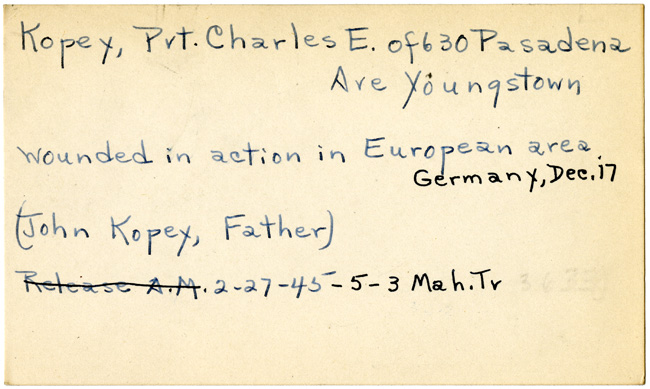 Kopey, Pvt. Charles E. of 630 Pasadena
Ave Youngstown
wounded in action in European area.
Germany, Dec. 17
(John Kopey, Father)
Release A.M. 2-27-45-5-3 Mah. Tr